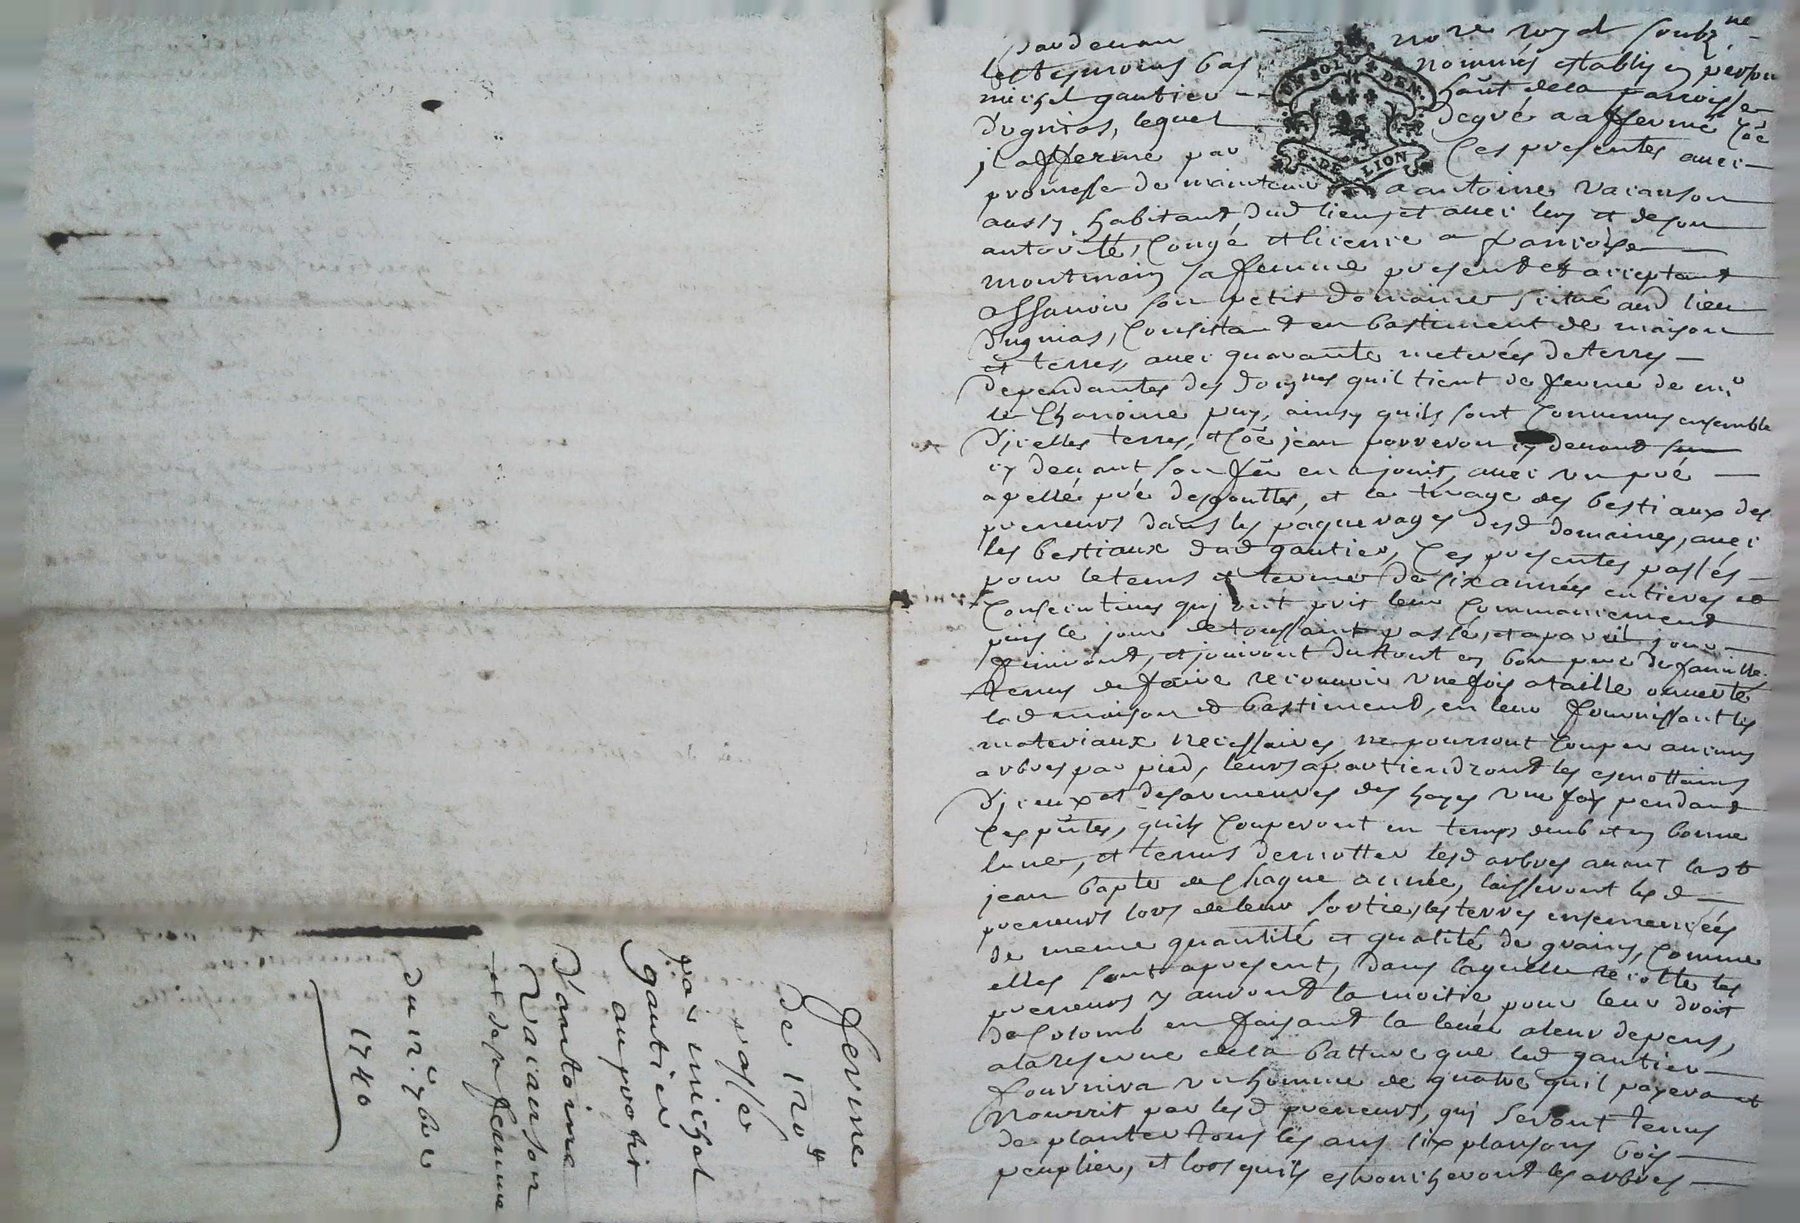 pardevant no.re royal soubz.ne
les tesmoins bas nommés estably en person
michel gautier hau't dela parroisse
Dugnias, lequel Degré a afferme coe
il afferme par Ces presentes avec
promesse de maintenir a antoine vacanson
aussy habitant dud lieu, et avec luy et de son
autorité, Congé et licence a francoise
montmain sa femme present et acceptant
assavoir son petit domaine scitué aud lieu
Dugnias, Consistand en bastiment de maison
et terres, avec quarante meterées de terres
dependantes des quil tient de ferme de mr
le Chanoine puy, ainsy quils sont Convenus ensemble
Djcelles terres, et Coe jean cy devant
cy devant son fer en a jouit, avec un pré
apellé pré desgouttes, et le tirage des bestiaux des
preneurs dans les paquerages desd domaines, avec
les bestiaux dud gautier, Ces presentes passés
pour le tems et terme de six années entieres et
Consecutives qui ont pris leur Commancement
puis le jour de toussaint passé, et apareil jour
finiront, et jouiront du tout en bon pere de famille
tenus de faire recouvrir une fois a taille ouverte
lad maison et bastiment, en leur fournissant les
materiaux necessaires, ne pourront Couper aucuns
arbres par pied, leurs apartiendront les esmottains
Djceux et des hayes une fois pendant
Ces pntes, quils Couperont en temps deub et en bonne
lune, et tenus demotter lesd arbres avant la st
jean bapte de Chaque année, laisseront lesd
preneurs lors de leur sortie, les terres ensemencées
de meme quantité et qualité de grains, Comme
elles sont apresent, dans laquelle recolte les
preneurs y auront la moitié pour leur droit
de Colomb en faisant la levée a leur depens,
ala reserve dela batture que led gautier
fournira un homme de quatre quil payera et
Nourrit par lesd preneurs, qui seront tenus
de planter tous les ans six plansons bois
peuplier, et lors quils esbrancheront les arbres
ferme
de 120#
passé
par michel
gautier
au profit
D'antoine
Vacanson
et de sa femme
du 12e. 9bre
1740